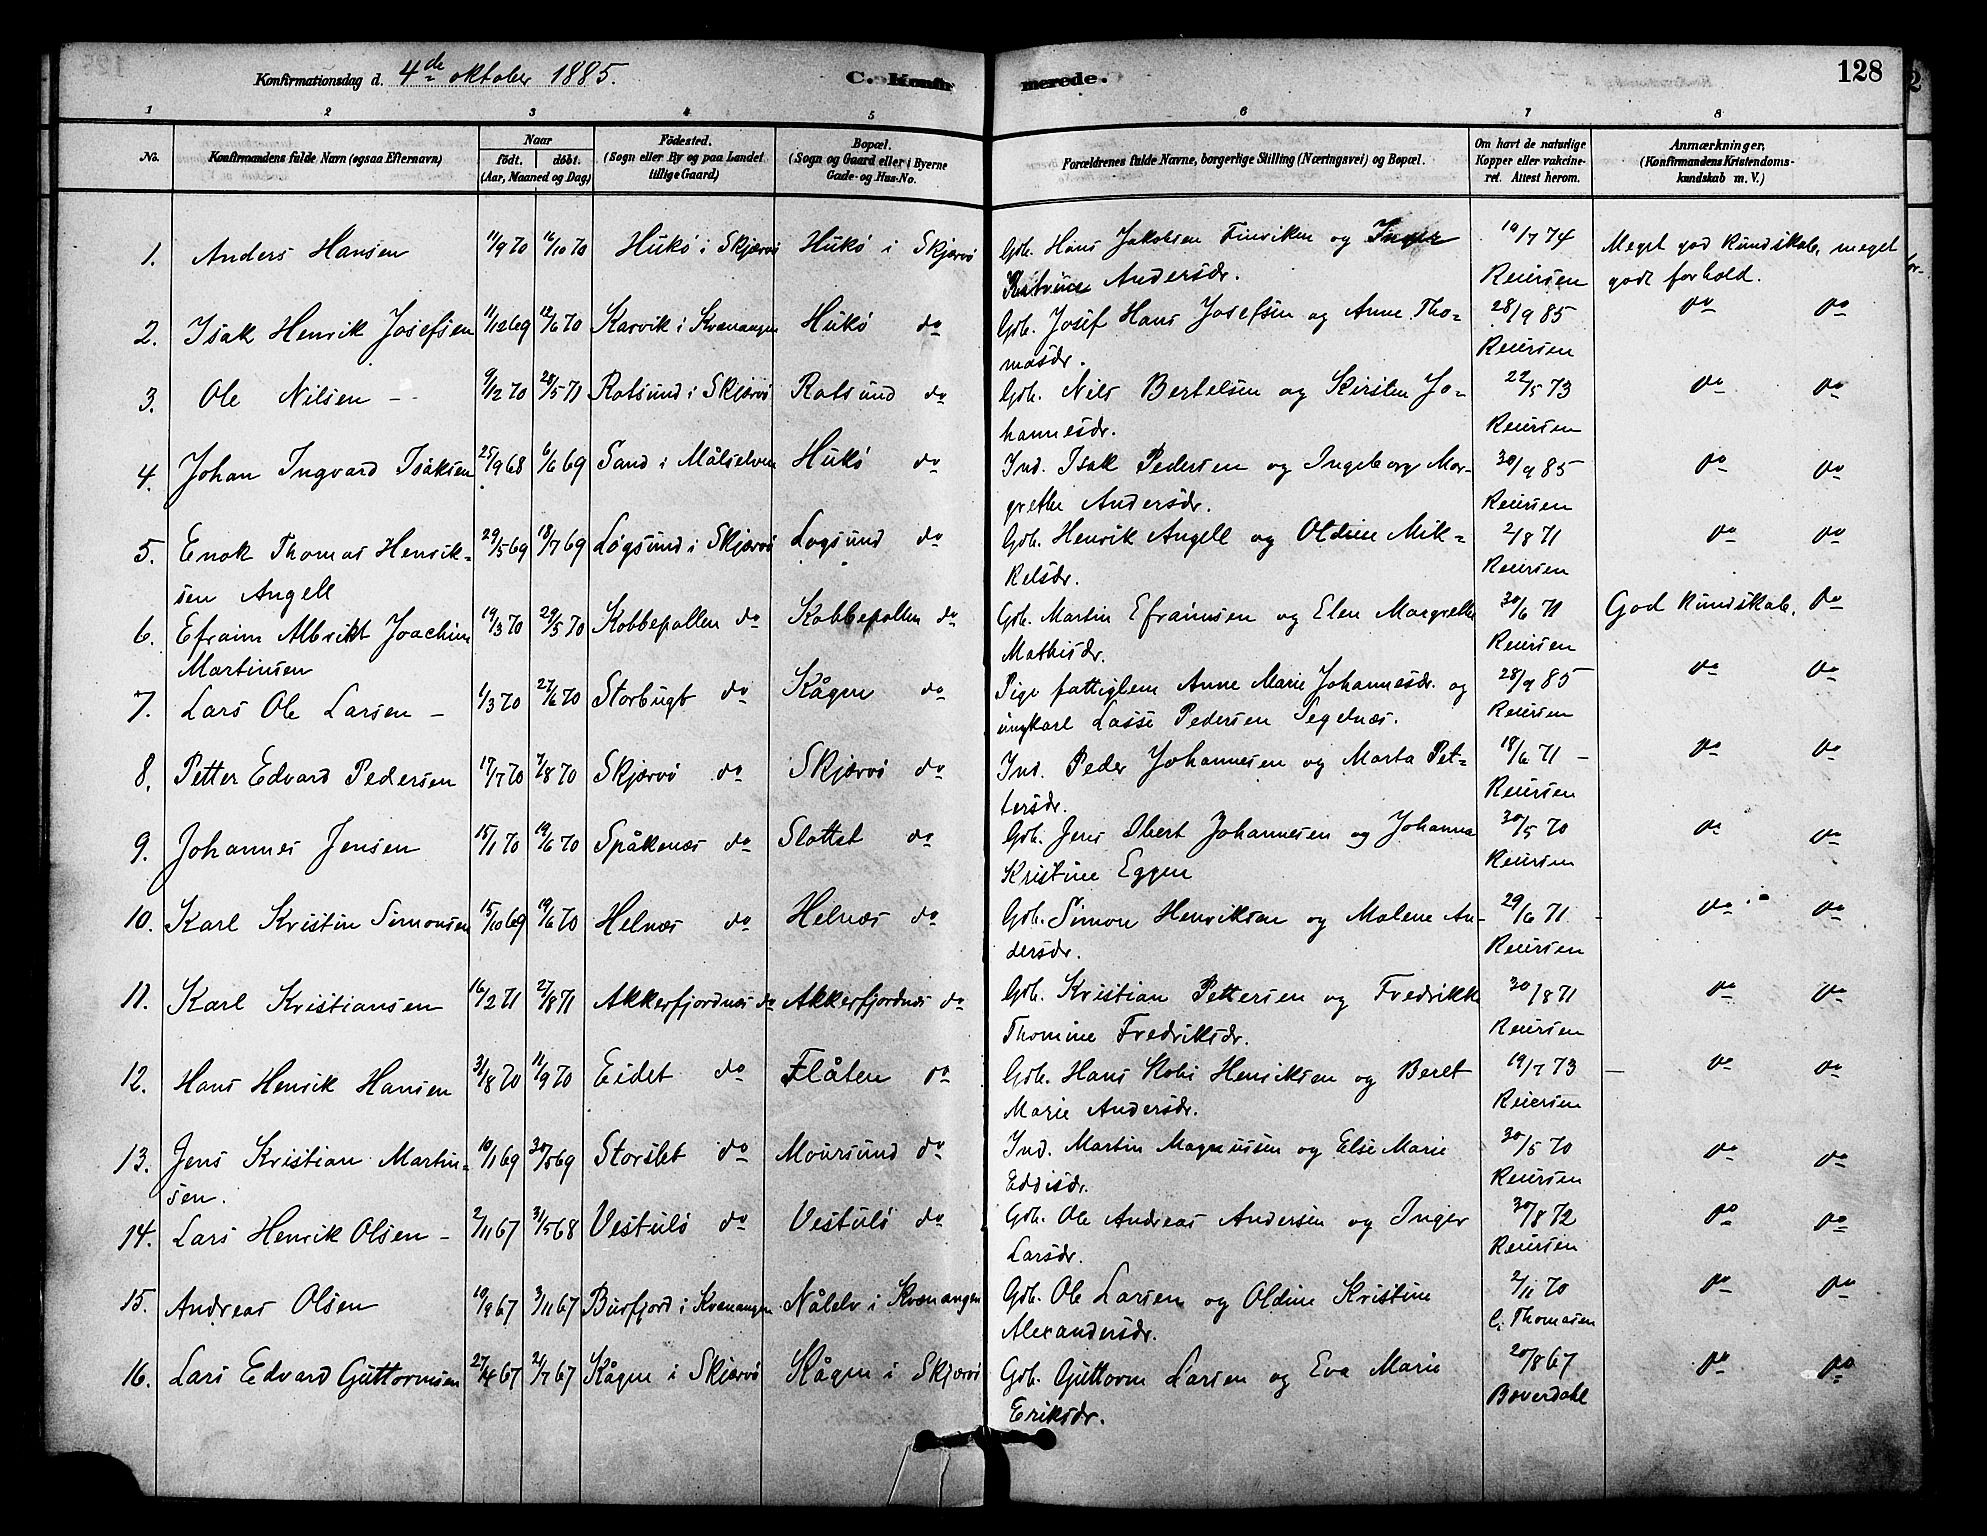 Konfirmationsdag d. 4de oktober 1885.
C. Konfirmerede.
128
1 2 3 4 5 6 7 8
No.
Konfirmandens fulde Navn (ogsaa Efternavn)
Naar
födt. döbt.
(Aar, Maaned og Dag)
Födested.
(Sogn eller By og paa Landet
tillige Gaard)
Bopæl.
(Sogn og Gaard eller i Byerne
Gade- og Hus-No.
Forældrenes fulde Navne, borgerlige Stilling (Næringsvei) og Bopæl.
Om havt de naturlige
Kopper eller vakcine-
ret. Attest herom.
Anmærkninger.
(Konfirmandens Kristendoms-
kundskab m. V.)
1. Anders Hansen 11/9 70 16/10 70 Hukö i Skjærvö Hukö i Skjærvö Gdb. Hans Jakobsen Finviken og Inger 19/7 74 Meget god Kundskab, meget
Andersdr. Reiersen godt forhold.
2. Isak Henrik Josefsen 11/12 69 12/6 70 Karvik i Kvænangen Hukö do Gdb. Josef Hans Josefsen og Anne Tho- 28/9 85 do do
masdr. Reiersen
3. Ole Nilsen - 9/12 70 28/5 71 Rotsund i Skjærvö Rotsund do Gdb. Nils Bertelsen og Kirsten Jo- 22/5 73 do do
hannesdr. Reiersen
4. Johan Ingvard Isaksen 25/9 68 6/6 69 Sand i Målselven Hukö do Ind. Isak Pedersen og Ingeborg Mar- 30/9 85 do do
grethe Andersdr. Reiersen
5. Enok Thomas Henrik- 29/5 69 18/7 69 Lögsund i Skjærvö Logsund do Gdb. Henrik Angell og Oldine Mik- 2/8 71 do do
sen Angell kelsdr. Reiersen
6. Efraim Albrikt Joachim 19/3 70 29/5 70 Kobbepollen do Kobbepollen do Gdb. Martin Efraimsen og Elen Margrethe 30/6 71 God Kundskab. do
Martinsen Mathisdr. Reiersen
7. Lars Ole Larsen - 1/3 70 27/6 70 Storbugt do Kågen do Pige fattiglem Anne Marie Johannesdr. og 28/9 85 do do
ungkarl Lasse Pedersen Segelnæs. Reiersen
8. Petter Edvard Pedersen 17/7 70 7/8 70 Skjærvö do Skjærvö do Ind. Peder Johannesen og Marta Pet- 18/6 71 - do do
tersdr. Reiersen
9. Johannes Jensen 15/1 70 19/6 70 Spåkenæs do Slottet do Gdb. Jens Obert Johannesen og Johanna 30/5 70 do do
Kristine Eggen Reiersen
10. Karl Kristin Simonsen 15/10 69 19/6 70 Helnæs do Helnæs do Gdb. Simon Henriksen og Malene An- 29/6 71 - do do
dersdr. Reiersen
11. Karl Kristiansen 16/2 71 27/8 71 Akkerfjordnæs do Akkerfjordnæs do Gdb. Kristian Pettersen og Fredrikke 30/8 71 do do
Thomine Fredriksdr. Reiersen
12. Hans Henrik Hansen 31/8 70 11/9 70 Eidet do Flåten do Gdb. Hans Henriksen og Beret 19/7 73 - do do
Marie Andersdr. Reiersen
13. Jens Kristian Martin- 10/1 69 30/5 69 Storslet do Moursund do Ind. Martin Magnussen og Else Marie 30/5 70 do do
sen. Eddisdr. Reiersen
14. Lars Henrik Olsen - 2/11 67 31/5 68 Vestulö do Vestulö do Gdb. Ole Andreas Andersen og Inger 30/8 72 do do
Larsdr. Reiersen
15. Andreas Olsen 10/9 67 3/11 67 Burfjord i Kvænangen Nålelv i Kvænangen Gdb. Ole Larsen og Oldine Kristine 2/11 70 do do
Alexandersdr. C. Thomasen
16. Lars Edvard Guttormsen 27/4 67 21/7 67 Kågen i Skjærvö Kågen i Skjærvö Gdb. Guttorm Larsen og Eva Marie 20/8 67 do do
Eriksdr. Boverdahl